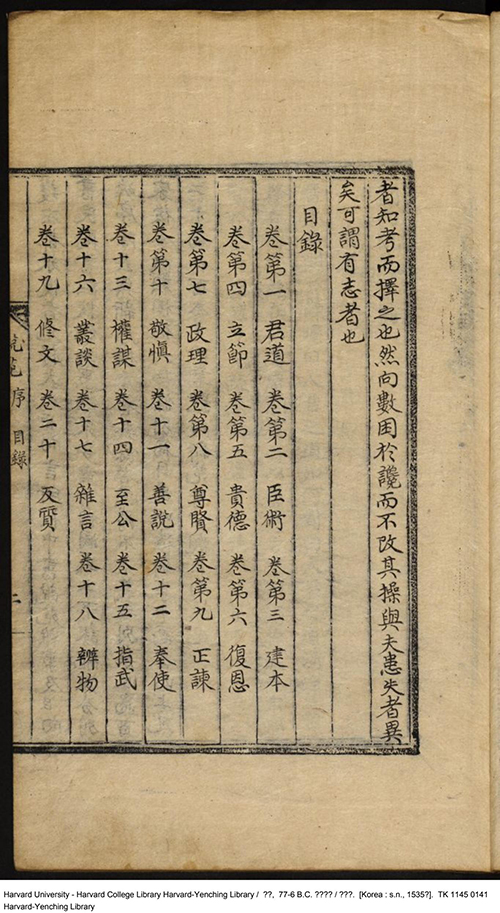 者知考而擇之也然向數困於讒而不改其操與夫患失者異
矣可謂有志者也
目錄
卷第一 君道 卷第二 臣術 卷第三 建本
卷第四 立節 卷第五 貴德 卷第六 復恩
卷第七 政理 卷第八 尊賢 卷第九 正諫
卷第十 敬慎 卷十一 善說 卷十二 奉使
卷十三 權謀 卷十四 至公 卷十五 指武
卷十六 叢談 卷十七 雜言 卷十八 辨物
卷十九 脩文 卷二十 反質
說苑序 目錄 二
Harvard University - Harvard College Library Harvard-Yenching Library / ??, 77-6 B.C. ???? / ???. [Korea : s.n., 1535?]. TK 1145 0141
Harvard-Yenching Library